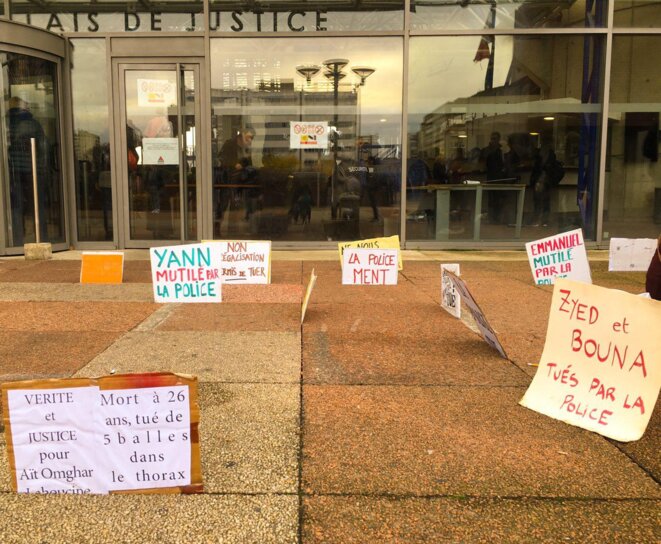 DE JUSTICE
YANN
MUTILÉ PAR
LA POLICE
NON
PERMIS DE TUER
LA POLICE
MENT
EMMANUEL
MUTILÉ
PAR LA
POLICE
ZYED et
BOUNA
TUÉS PAR LA
POLICE
VERITE
et
JUSTICE
pour
Aït Omghar
Lahoucine
Mort à 26
ans, tué de
5 balles
dans
le thorax